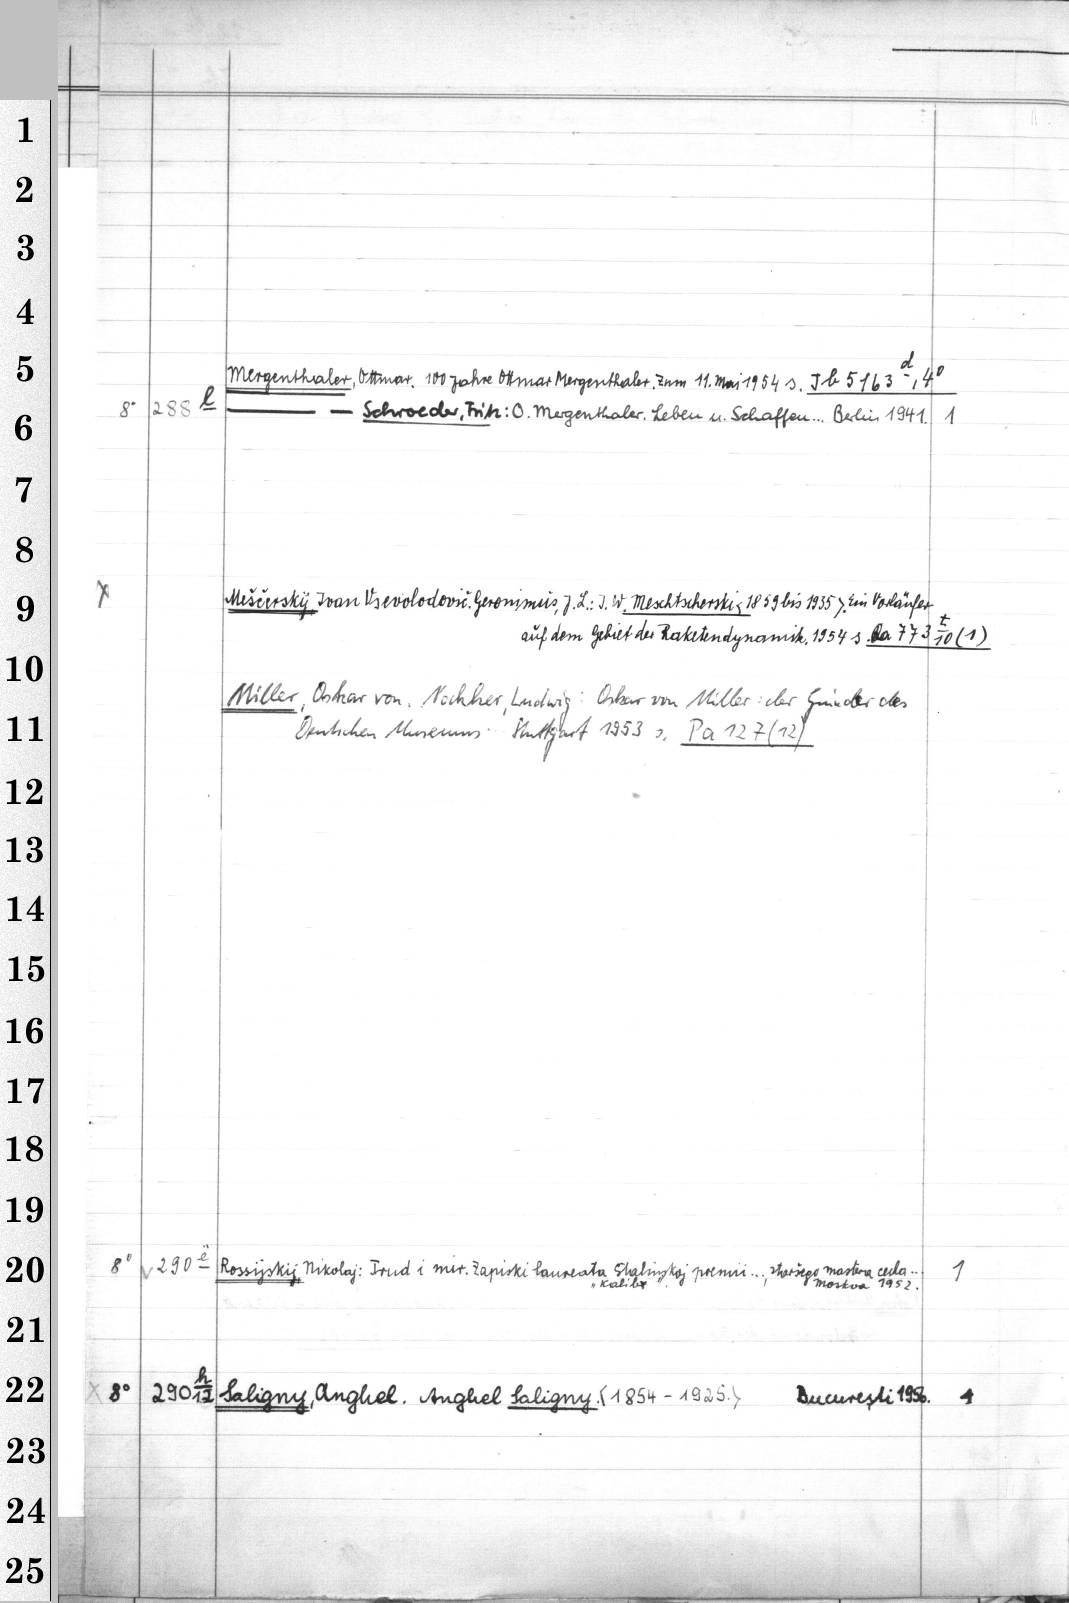 1
2
3
4
5
Mergenthaler, Ottmar. 100 Jahre Ottmar Mergenthaler. Zum 11. Mai 1954 s. Jb 5163 d, 4°
6
8° 288 l — — Schroeder, Fritz: O. Mergenthaler. Leben u. Schaffen... Berlin 1941. 1
7
8
9
x Meščerskij Ivan Vsevolodovič. Geronimus, J. L.: I. W. Meschtscherski <1859 bis 1935>. Ein Vorläufer
auf dem Gebiet der Raketendynamik. 1954 s. Pa 773 t/10 (1)
10
Miller, Oskar von. Nockher, Ludwig: Oskar von Miller: der Gründer des
11
Deutschen Museums. Stuttgart 1953 s. Pa 127 (12)
12
13
14
15
16
17
18
19
20
8° √ 290 Rossijskij, Nikolaj: Trud i mir. Zapiski laureata Stalinskoj premii..., staršego mastera cecha...
"Kalibr". Moskva 1952. 1
21
22
x 8° 290 h/12 Saligny, Anghel. Anghel Saligny. <1854-1925.> Bucureşti 1956. 1
23
24
25